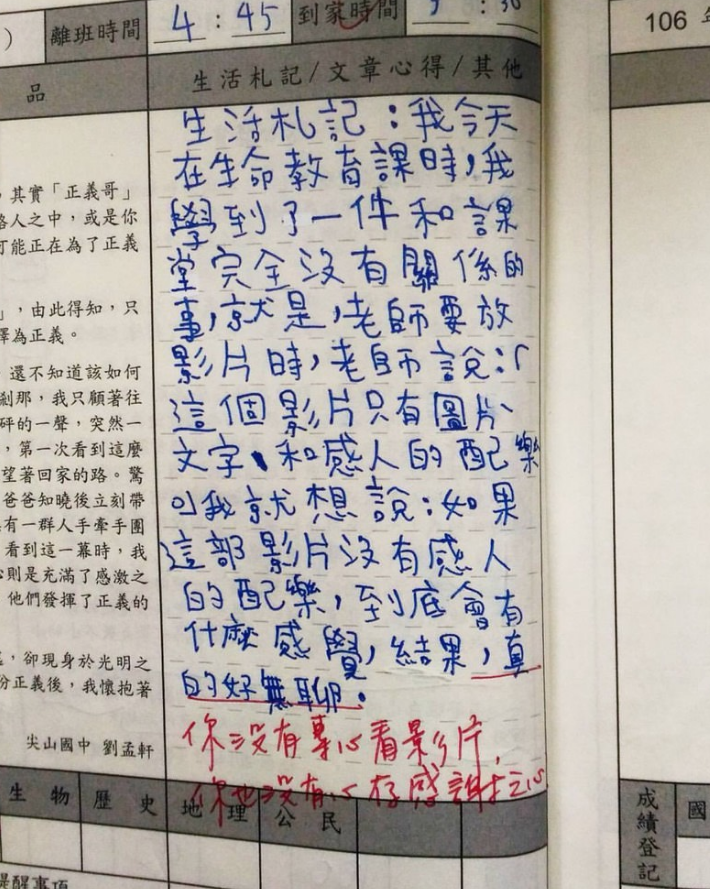 離班時間
4:45
到家時間
106
品
生活札記/文章心得/其他
生活札記:我今天
在生命教育課時,我
學到了一件和課
堂完全沒有關係的
事,就是,老師要放
影片時,老師說:「
這個影片只有圖片、
文字、和感人的配樂
」我就想說:如果
這部影片沒有感人
的配樂,到底會有
什麼感覺,結果,真
的好無聊。
你沒有專心看影片,
你也沒有心存感謝之心
,其實「正義哥」
路人之中,或是你
可能正在為了正義
」,由此得知,只
擇為正義。
還不知道該如何
剎那,我只顧著往
砰的一聲,突然一
,第一次看到這麼
望著回家的路。驚
爸爸知曉後立刻帶
有一群人手牽手圍
看到這一幕時,我
心則是充滿了感激之
他們發揮了正義的
,卻現身於光明之
份正義後,我懷抱著
尖山國中 劉孟軒
生物
歷史
地理
公民
成績登記
國
提醒事項